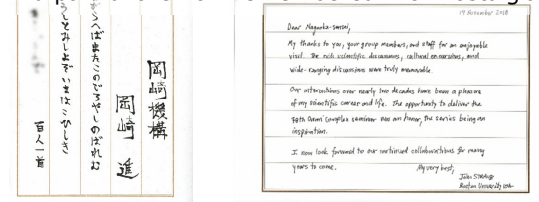 岡崎機構
岡崎 進
がらへばまたこのごろやしのばれむ
うしとみしよぞいまはこひしき
百人一首
November 2018
Dear Nagaoka-sensei,
My thanks to you, your group members, and staff for an enjoyable
visit. The rich scientific discussions, cultural excursions, and
wide-ranging discussions were truly memorable.
Our interactions over nearly two decades have been a pleasure
of my scientific career and life. The opportunity to deliver the
seminar was an honor, the series being an
inspiration.
I now look forward to our continued collaborations for many
years to come.
My very best,
John Straub
Boston University USA